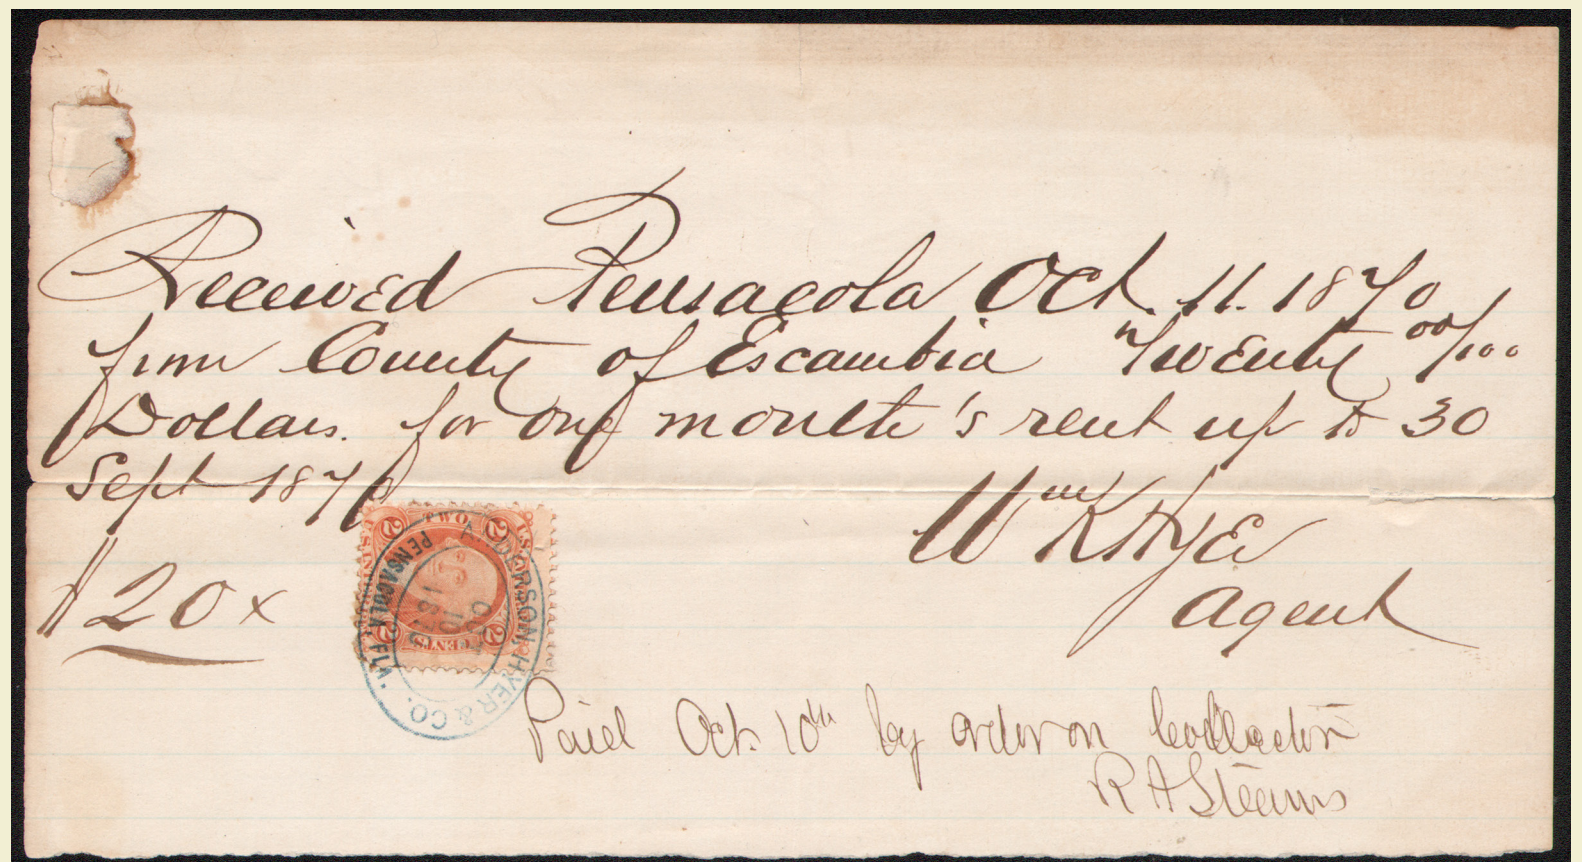 Received Pensacola Oct. 11. 1870
from County of Escambia Twenty 00/100
Dollars. for one month's rent up to 30
Sept 1870
Wm K Hyer
Agent
$20 x
U.S. INTER. REV.
TWO
2 2
2 CENTS 2
ANDERSON, HYER & CO.
PENSACOLA FLA.
OCT
10
187
Paid Oct. 10th by order on Collector
R A Stearns